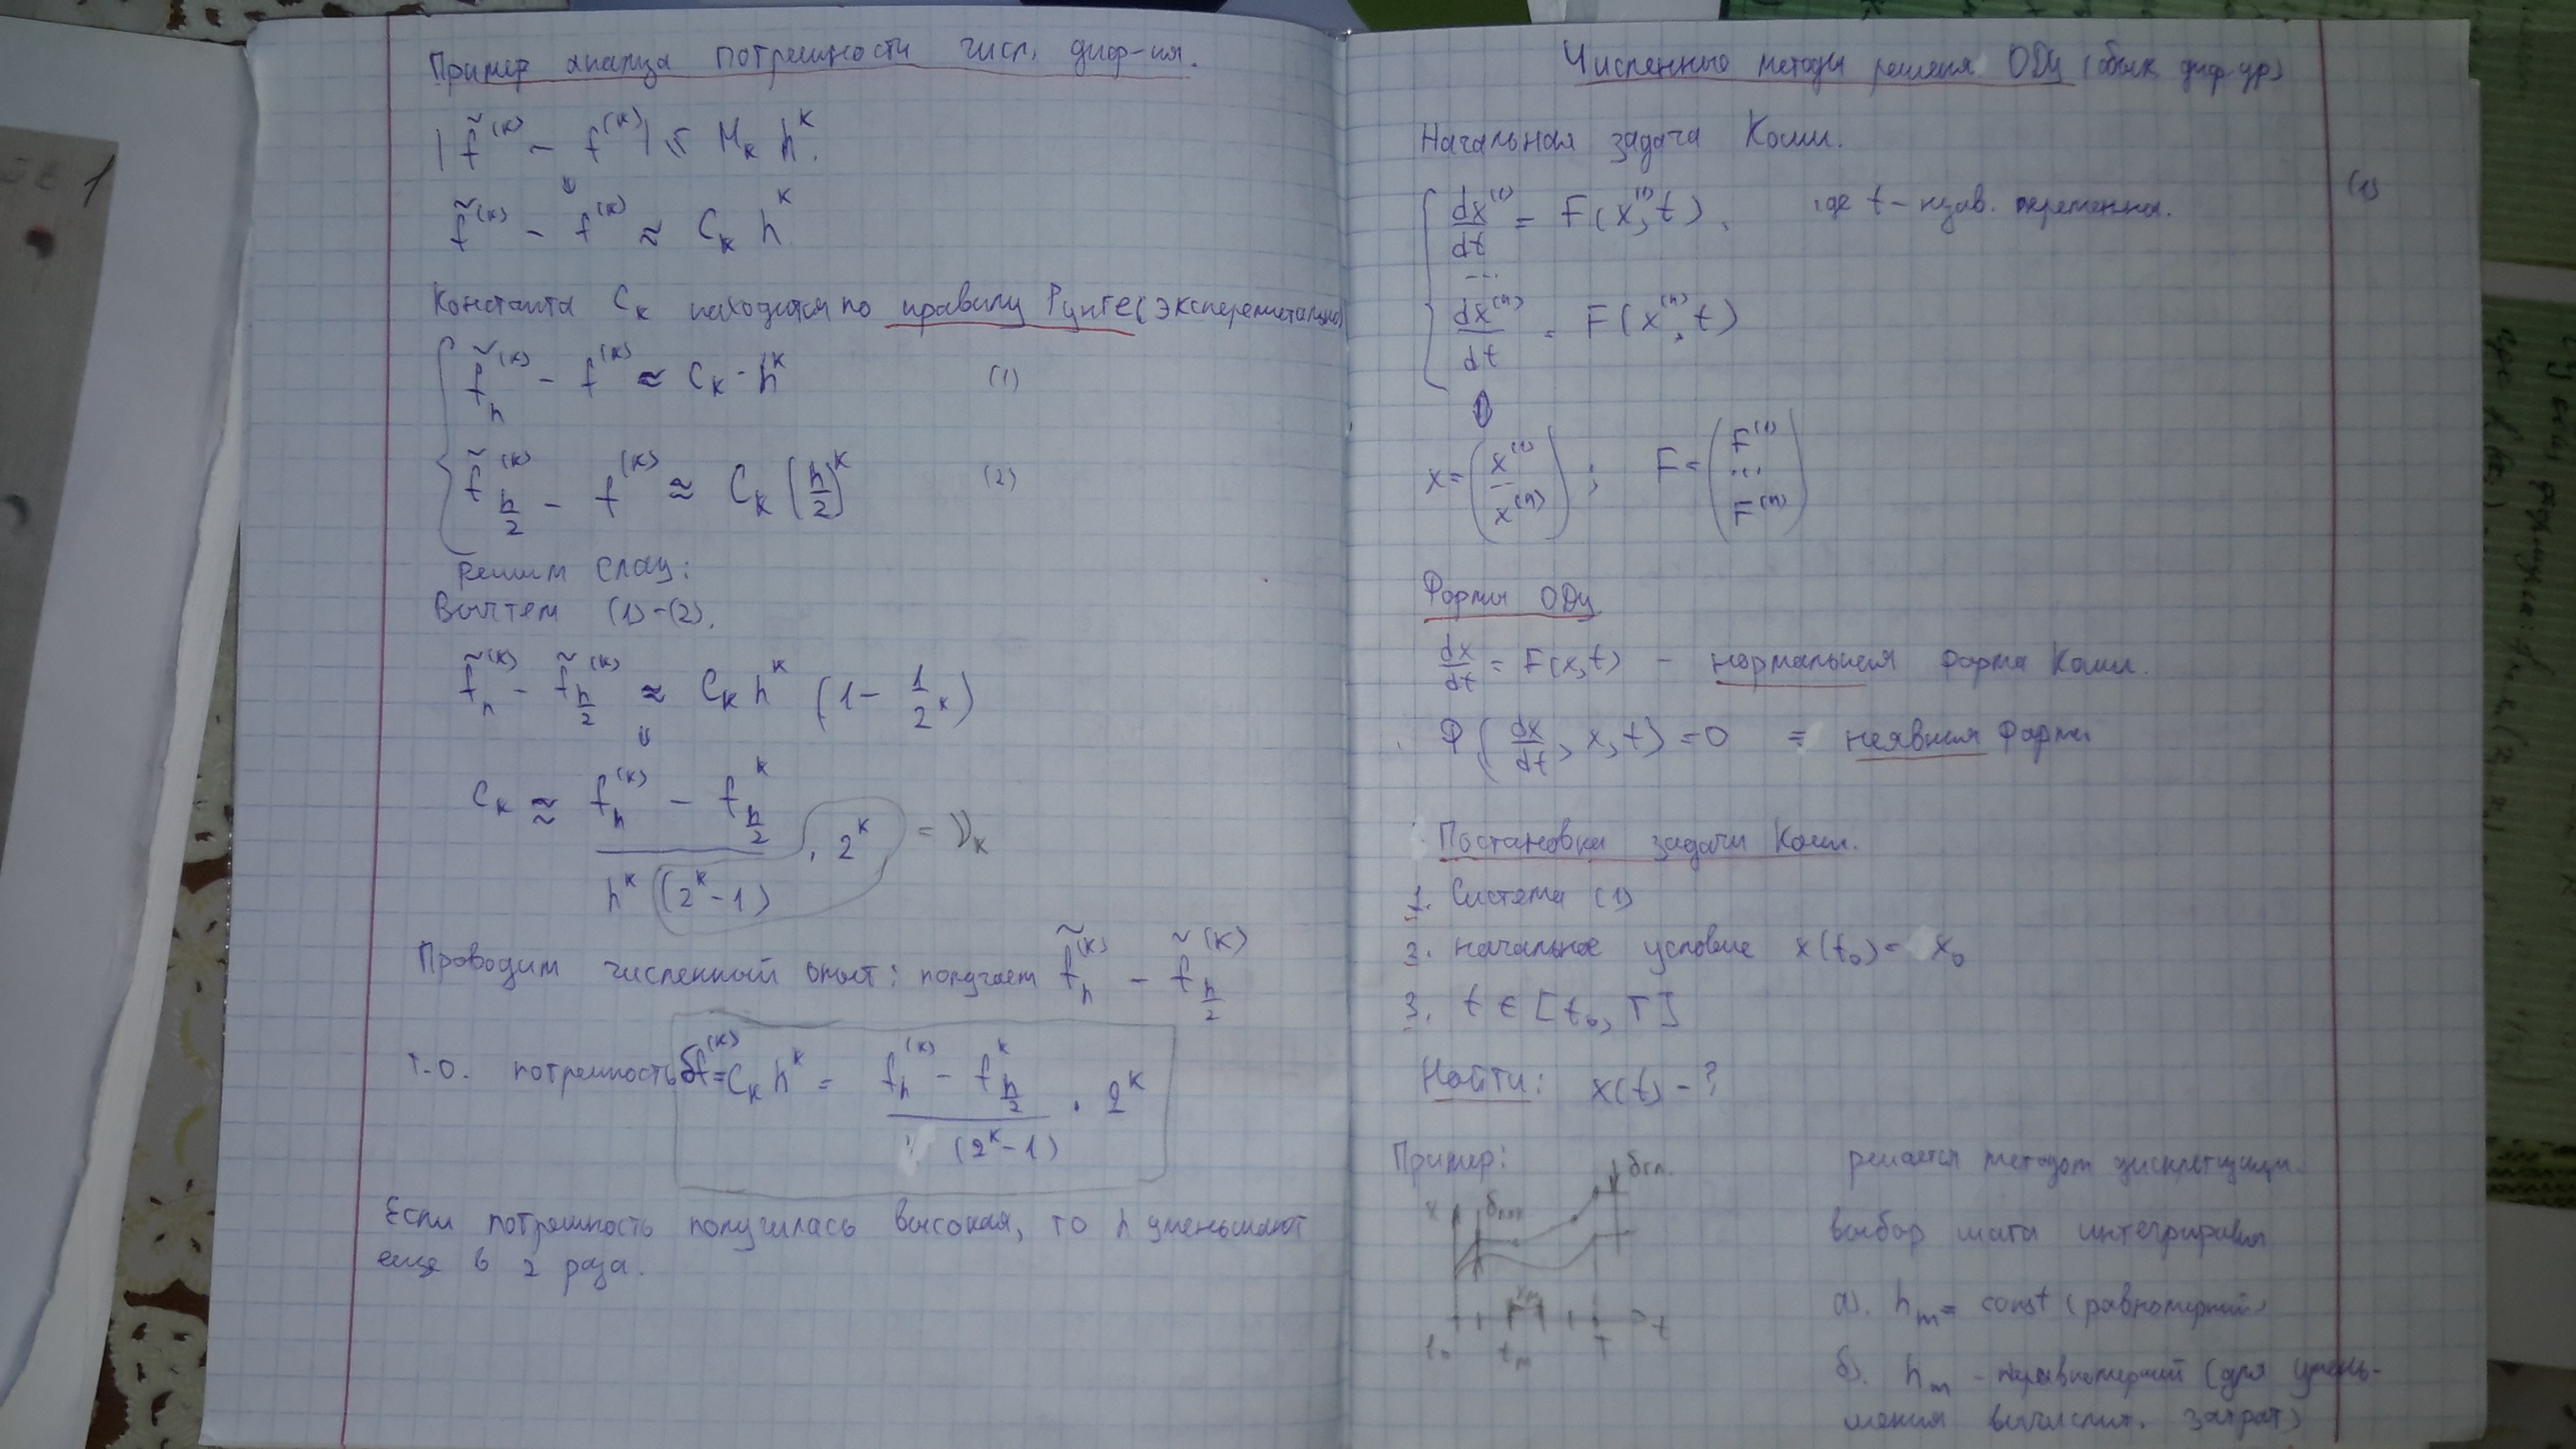 Пример анализа погрешности числ. диф-ия.
|f̃^(k) - f^(k)| ≤ M_k h^k.
⇓
f̃^(k) - f^(k) ≈ C_k h^k
Константа C_k находится по правилу Рунге (эксперементально)
f̃_h^(k) - f^(k) ≈ C_k · h^k (1)
f̃_{h/2}^(k) - f^(k) ≈ C_k (h/2)^k (2)
Решим слау:
Вычтем (1)-(2).
f̃_h^(k) - f̃_{h/2}^(k) ≈ C_k h^k (1 - 1/2^k)
⇓
C_k ≈ (f_h^(k) - f_{h/2}^k) / (h^k (2^k - 1)) · 2^k = ν_k
Проводим численный опыт: получаем f̃_h^(k) - f̃_{h/2}^(k)
Т.О. погрешность δf^(k) = C_k h^k = (f_h^(k) - f_{h/2}^k) / (2^k - 1) · 2^k
Если погрешность получилась высокая, то h уменьшают
еще в 2 раза.
Численные методы решения ОДУ (обык. диф. ур)
Начальная задача Коши.
dx^(1)/dt = F(x^(1), t), где t - незав. переменная. (1)
...
dx^(n)/dt = F(x^(n), t)
x = (x^(1) ... x^(n)); F = (F^(1) ... F^(n))
Формы ОДУ
dx/dt = F(x, t) - нормальная форма Коши.
Φ(dx/dt, x, t) = 0 = неявная форма
Постановка задачи Коши.
1. Система (1)
2. начальное условие x(t₀) = x₀
3. t ∈ [t₀, T]
Найти: x(t) - ?
Пример: решается методом дискретизации.
x δлок δгл.
hm
t₀ tm T t
выбор шага интегрирования
а). h_m = const (равномерный)
б). h_m - неравномерный (для умень-
шения вычислит. затрат)